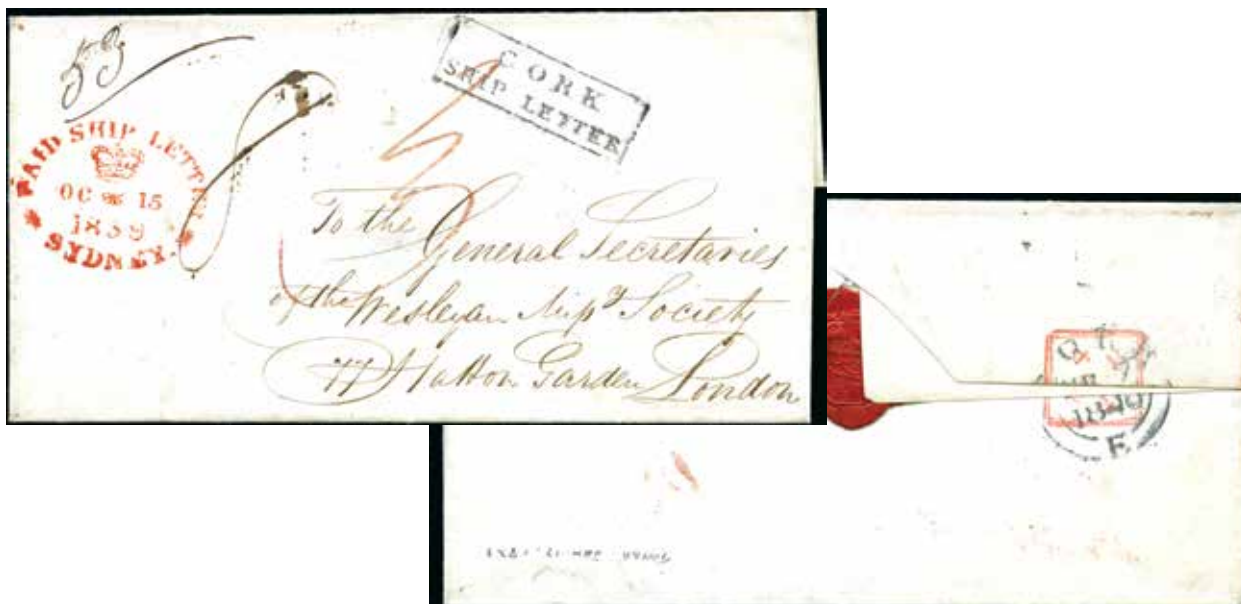 CORK
SHIP LETTER
PAID SHIP LETTER
OC 15
1839
SYDNEY.
To the General Secretaries
of the Wesleyan Misss Society
77 Hatton Garden London
1840
E